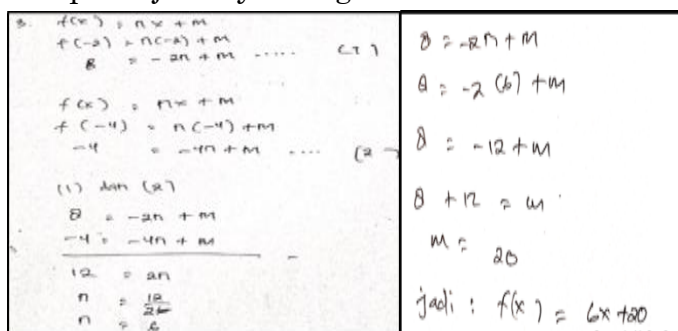 3. f(x) = nx + m
f(-2) = n(-2) + m
8 = -2n + m ..... (1)
f(x) = nx + m
f(-4) = n(-4) + m
-4 = -4n + m .... (2)
(1) dan (2)
8 = -2n + m
-4 = -4n + m
-
12 = 2n
n = 12/2
n = 6
8 = -2n + m
8 = -2 (6) + m
8 = -12 + m
8 + 12 = m
m = 20
jadi : f(x) = 6x + 20